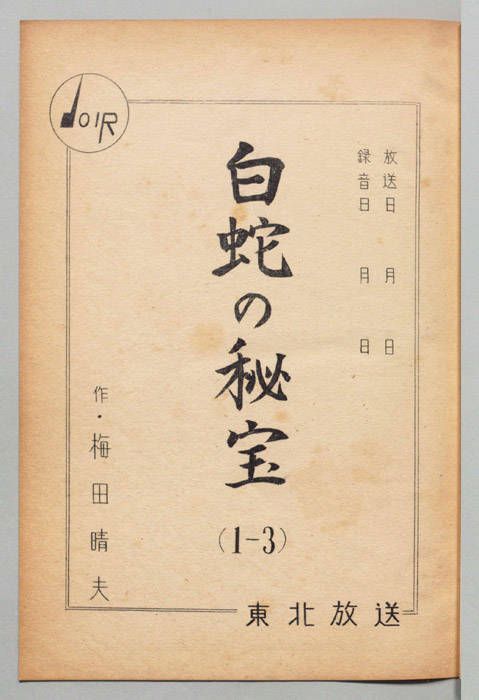 JOIR
放送日　月　日
録音日　月　日
白蛇の秘宝
(1-3)
作・梅田晴夫
東北放送